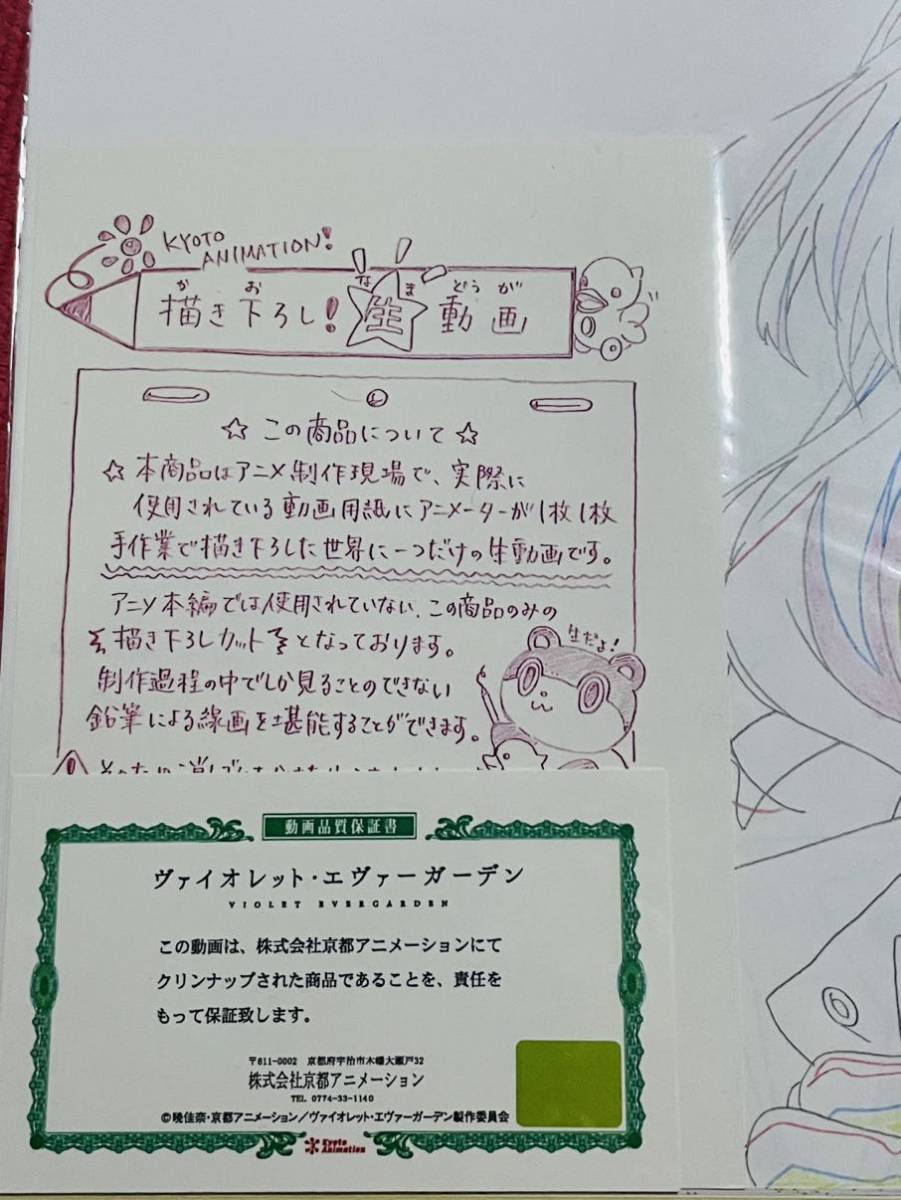 KYOTO
ANIMATION!
描き下ろし! 生 動画
か お な ま どう が
☆ この商品について ☆
☆ 本商品はアニメ制作現場で、実際に
使用されている動画用紙にアニメーターが1枚1枚
手作業で描き下ろした世界に一つだけの生動画です。
アニメ本編では使用されていない、この商品のみの
描き下ろしカットとなっております。
生だよ!
制作過程の中でしか見ることのできない
鉛筆による線画を堪能することができます。
動画品質保証書
ヴァイオレット・エヴァーガーデン
VIOLET EVERGARDEN
この動画は、株式会社京都アニメーションにて
クリンナップされた商品であることを、責任を
もって保証致します。
〒611-0002 京都府宇治市木幡大瀬戸32
株式会社京都アニメーション
TEL 0774-33-1140
©暁佳奈・京都アニメーション/ヴァイオレット・エヴァーガーデン製作委員会
Kyoto
Animation